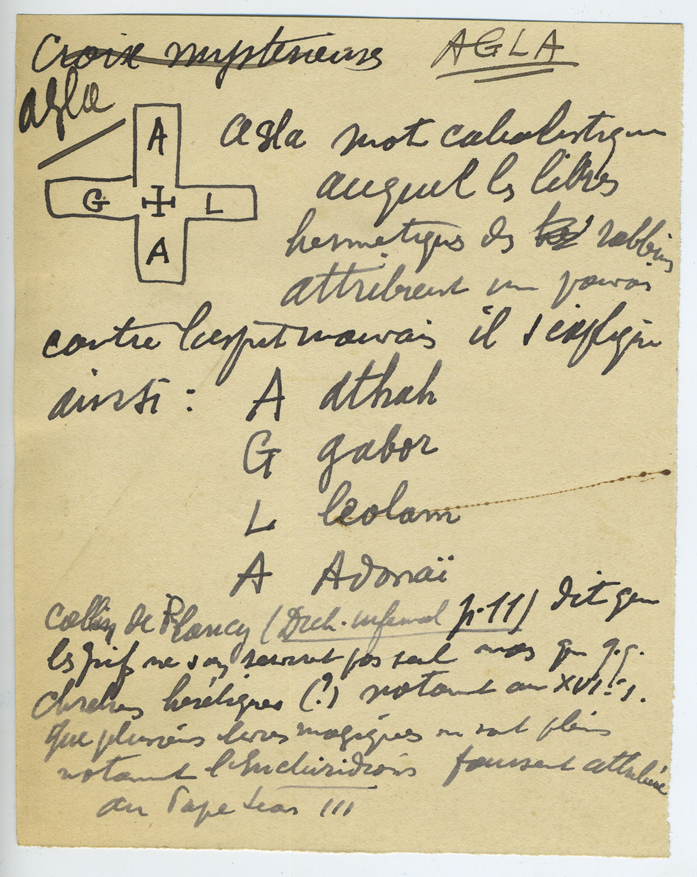 Croix mystérieuse AGLA
agla
A
G L
A
Agla mot cabalistique
auquel les livres
hermétiques des rabbins
attribuent un pouvoir
contre l'esprit mauvais il s'explique
ainsi : A Athah
G gabor
L leolam
A Adonaï
Collin de Plancy (Dict. infernal p. 11) dit que
les juifs ne s'en servent pas seul mais que q.q.
chrétiens hérétiques (?) notamt au XVI: s.
que plusieurs livres magiques en sont pleins
notamt l'Enchiridion faussent attribué
au Pape Léon III